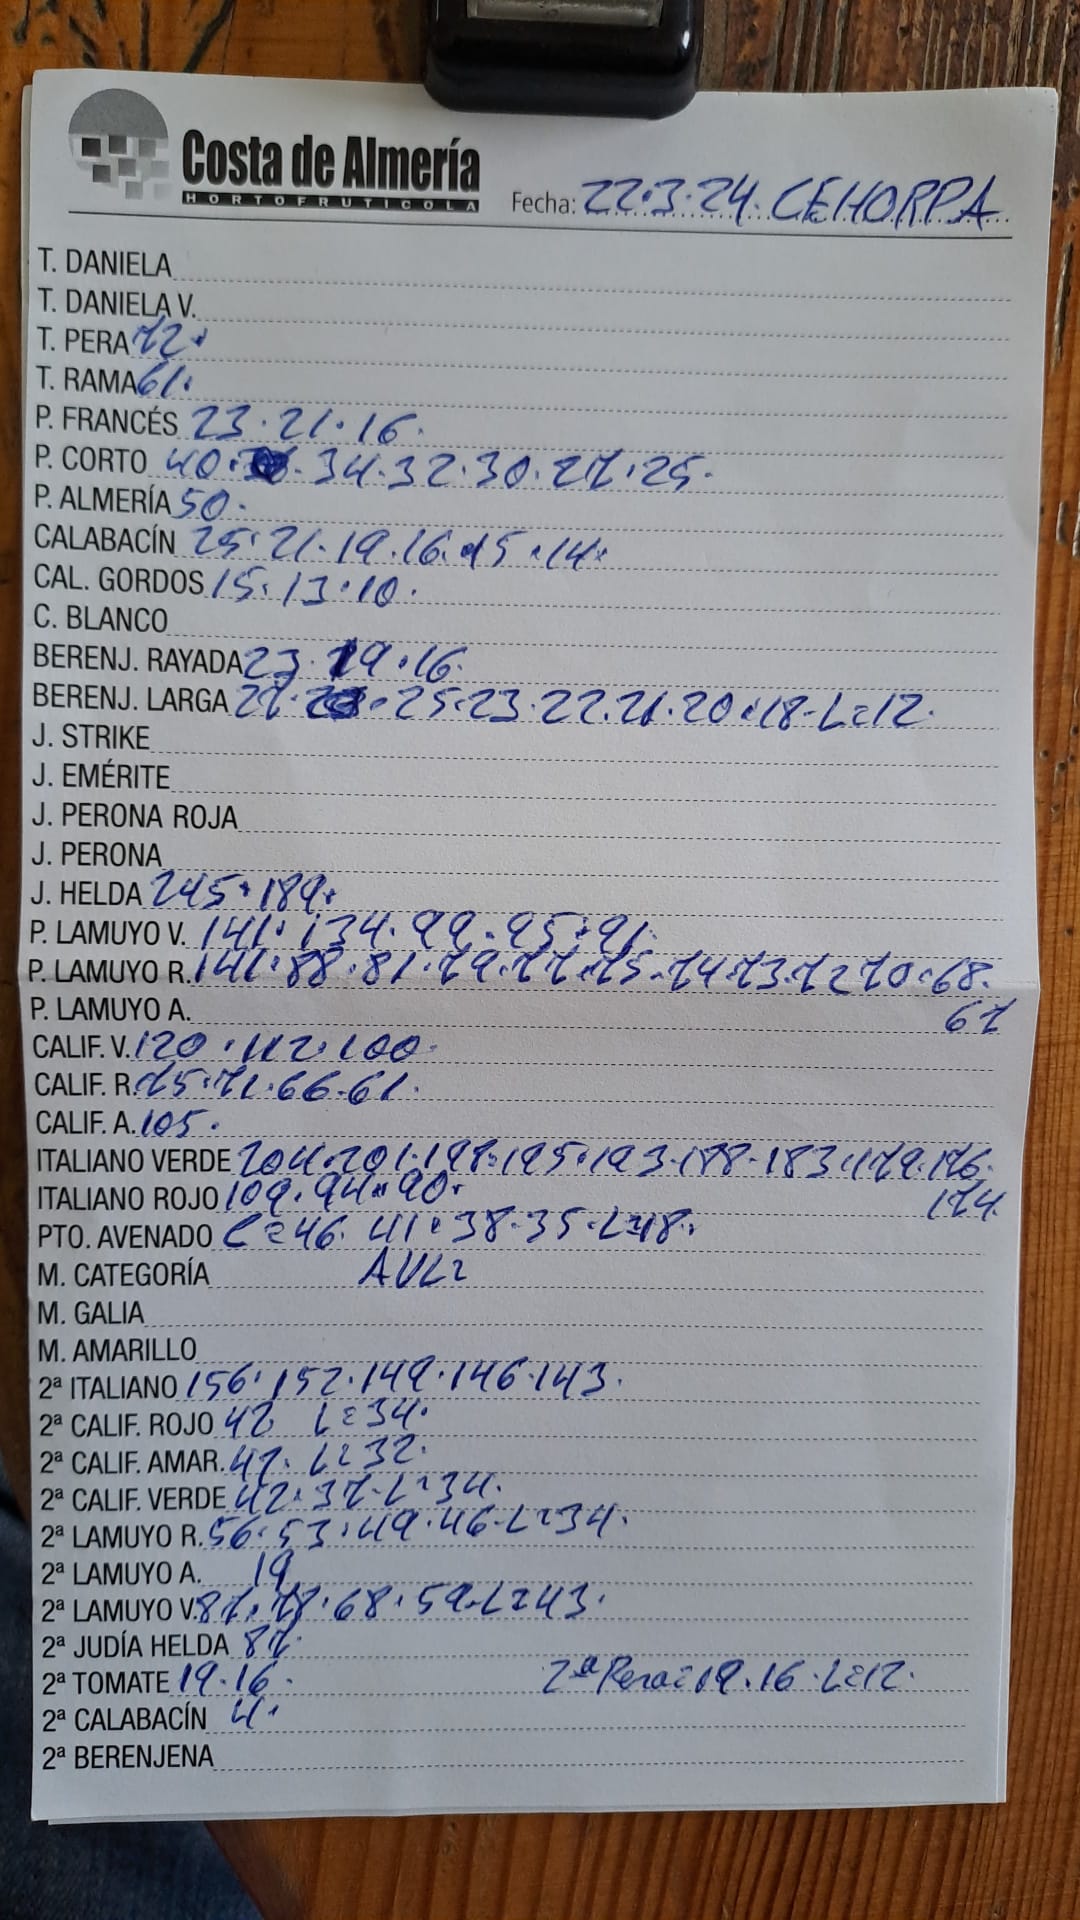 Costa de Almería
HORTOFRUTICOLA
Fecha: 22.3.24. CEHORPA
T. DANIELA
T. DANIELA V.
T. PERA 72.
T. RAMA 61.
P. FRANCÉS 23.21.16.
P. CORTO 40. .34.32.30.27.25.
P. ALMERÍA 50.
CALABACÍN 25.21.19.16.15.14.
CAL. GORDOS 15.13.10.
C. BLANCO
BERENJ. RAYADA 23.19.16.
BERENJ. LARGA 27. .25.23.22.21.20.18.L=12.
J. STRIKE
J. EMÉRITE
J. PERONA ROJA
J. PERONA
J. HELDA 245.189.
P. LAMUYO V. 141.134.99.95.91.
P. LAMUYO R. 141.88.81.79.77.75.74.73.72 70.68.
P. LAMUYO A. 67
CALIF. V. 120.112.100.
CALIF. R. 75.71.66.61.
CALIF. A. 105.
ITALIANO VERDE 204.201.198.195.193.188.183.179.176.
ITALIANO ROJO 109.94.90. 174.
PTO. AVENADO C=46. 41.38.35.L=18.
M. CATEGORÍA
M. GALIA
M. AMARILLO
2ª ITALIANO 156.152.149.146.143.
2ª CALIF. ROJO 42 L=34.
2ª CALIF. AMAR. L=32.
2ª CALIF. VERDE 42.37.L=34.
2ª LAMUYO R. 56.53.49.46.L=34.
2ª LAMUYO A. 19
2ª LAMUYO V. 87.78.68.59.L=43.
2ª JUDÍA HELDA 87.
2ª TOMATE 19.16. 2ª Pera=19.16.L=12.
2ª CALABACÍN 4.
2ª BERENJENA